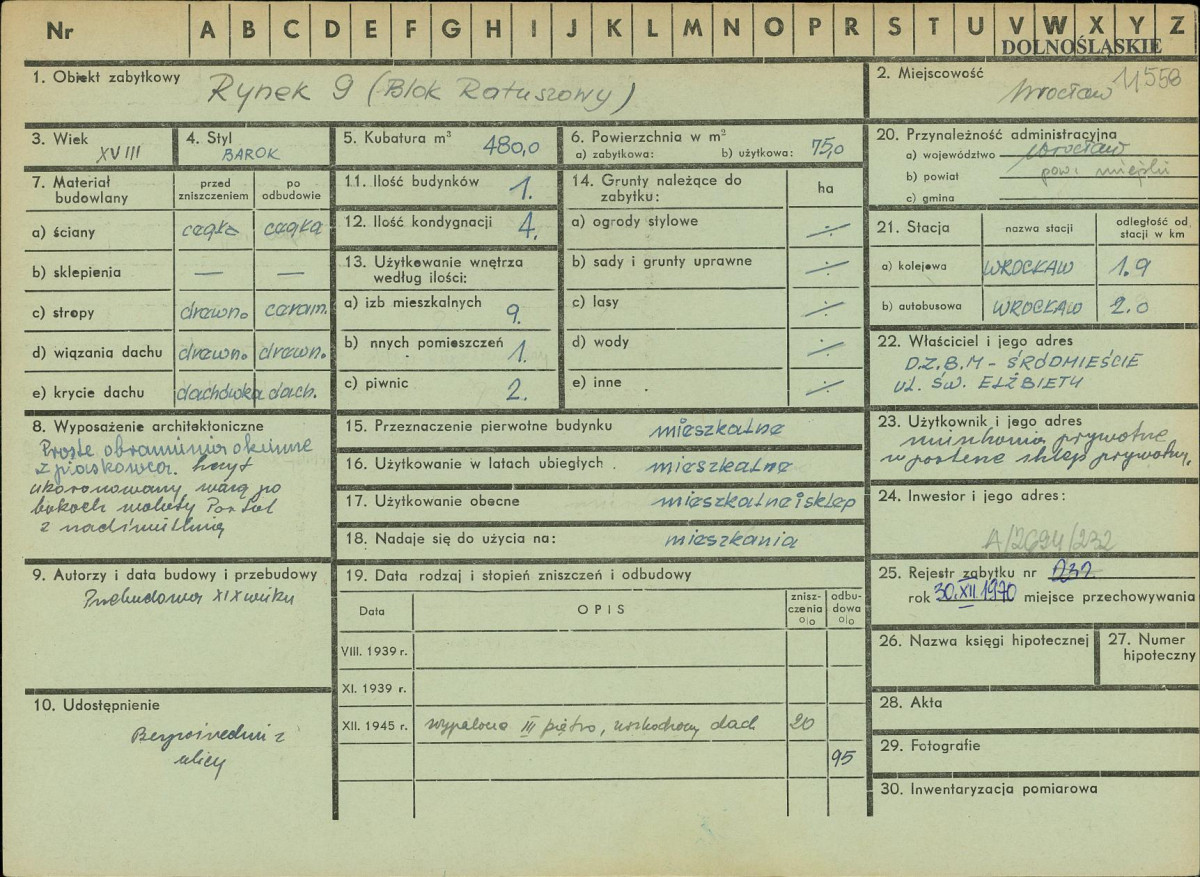 Nr A B C D E F G H I J K L M N O P R S T U V W X Y Z
DOLNOŚLĄSKIE
1. Obiekt zabytkowy Rynek 9 (Blok Ratuszowy)
2. Miejscowość Wrocław 11558
3. Wiek XVIII
4. Styl BAROK
5. Kubatura m³ 480,0
6. Powierzchnia w m²
a) zabytkowa: b) użytkowa: 75,0
20. Przynależność administracyjna
a) województwo Wrocław
b) powiat pow. miejski
c) gmina
7. Materiał budowlany
przed zniszczeniem
po odbudowie
a) ściany cegła cegła
b) sklepienia — —
c) stropy drewn. ceram.
d) wiązania dachu drewn. drewn.
e) krycie dachu dachówka dach.
11. Ilość budynków 1.
12. Ilość kondygnacji 4.
13. Użytkowanie wnętrza
według ilości:
a) izb mieszkalnych 9.
b) nnych pomieszczeń 1.
c) piwnic 2.
14. Grunty należące do
zabytku:
ha
a) ogrody stylowe ÷
b) sady i grunty uprawne ÷
c) lasy ÷
d) wody ÷
e) inne ÷
21. Stacja
nazwa stacji
odległość od
stacji w km
a) kolejowa WROCŁAW 1.9
b) autobusowa WROCŁAW 2.0
22. Właściciel i jego adres
D.Z.B.M - ŚRÓDMIEŚCIE
UL. ŚW. ELŻBIETY
8. Wyposażenie architektoniczne
Proste obramienia okienne
z piaskowca. szczyt
ukoronowany wazą po
bokach woluty Portal
z nadświetlnią
15. Przeznaczenie pierwotne budynku mieszkalne
16. Użytkowanie w latach ubiegłych mieszkalne
17. Użytkowanie obecne mieszkalne i sklep
18. Nadaje się do użycia na: mieszkania
23. Użytkownik i jego adres
mieszkania prywatne
w parterze sklep prywatny.
24. Inwestor i jego adres:
A/2694/232
25. Rejestr zabytku nr 232
rok 30.XII.1970 miejsce przechowywania
9. Autorzy i data budowy i przebudowy
Przebudowa XIX wieku
19. Data rodzaj i stopień zniszczeń i odbudowy
Data
OPIS
znisz-
czenia
o|o
odbu-
dowa
o|o
VIII. 1939 r.
XI. 1939 r.
XII. 1945 r. wypalone III piętro, uszkodzony dach 20
95
10. Udostępnienie
Bezpośrednie z
ulicy
26. Nazwa księgi hipotecznej
27. Numer
hipoteczny
28. Akta
29. Fotografie
30. Inwentaryzacja pomiarowa